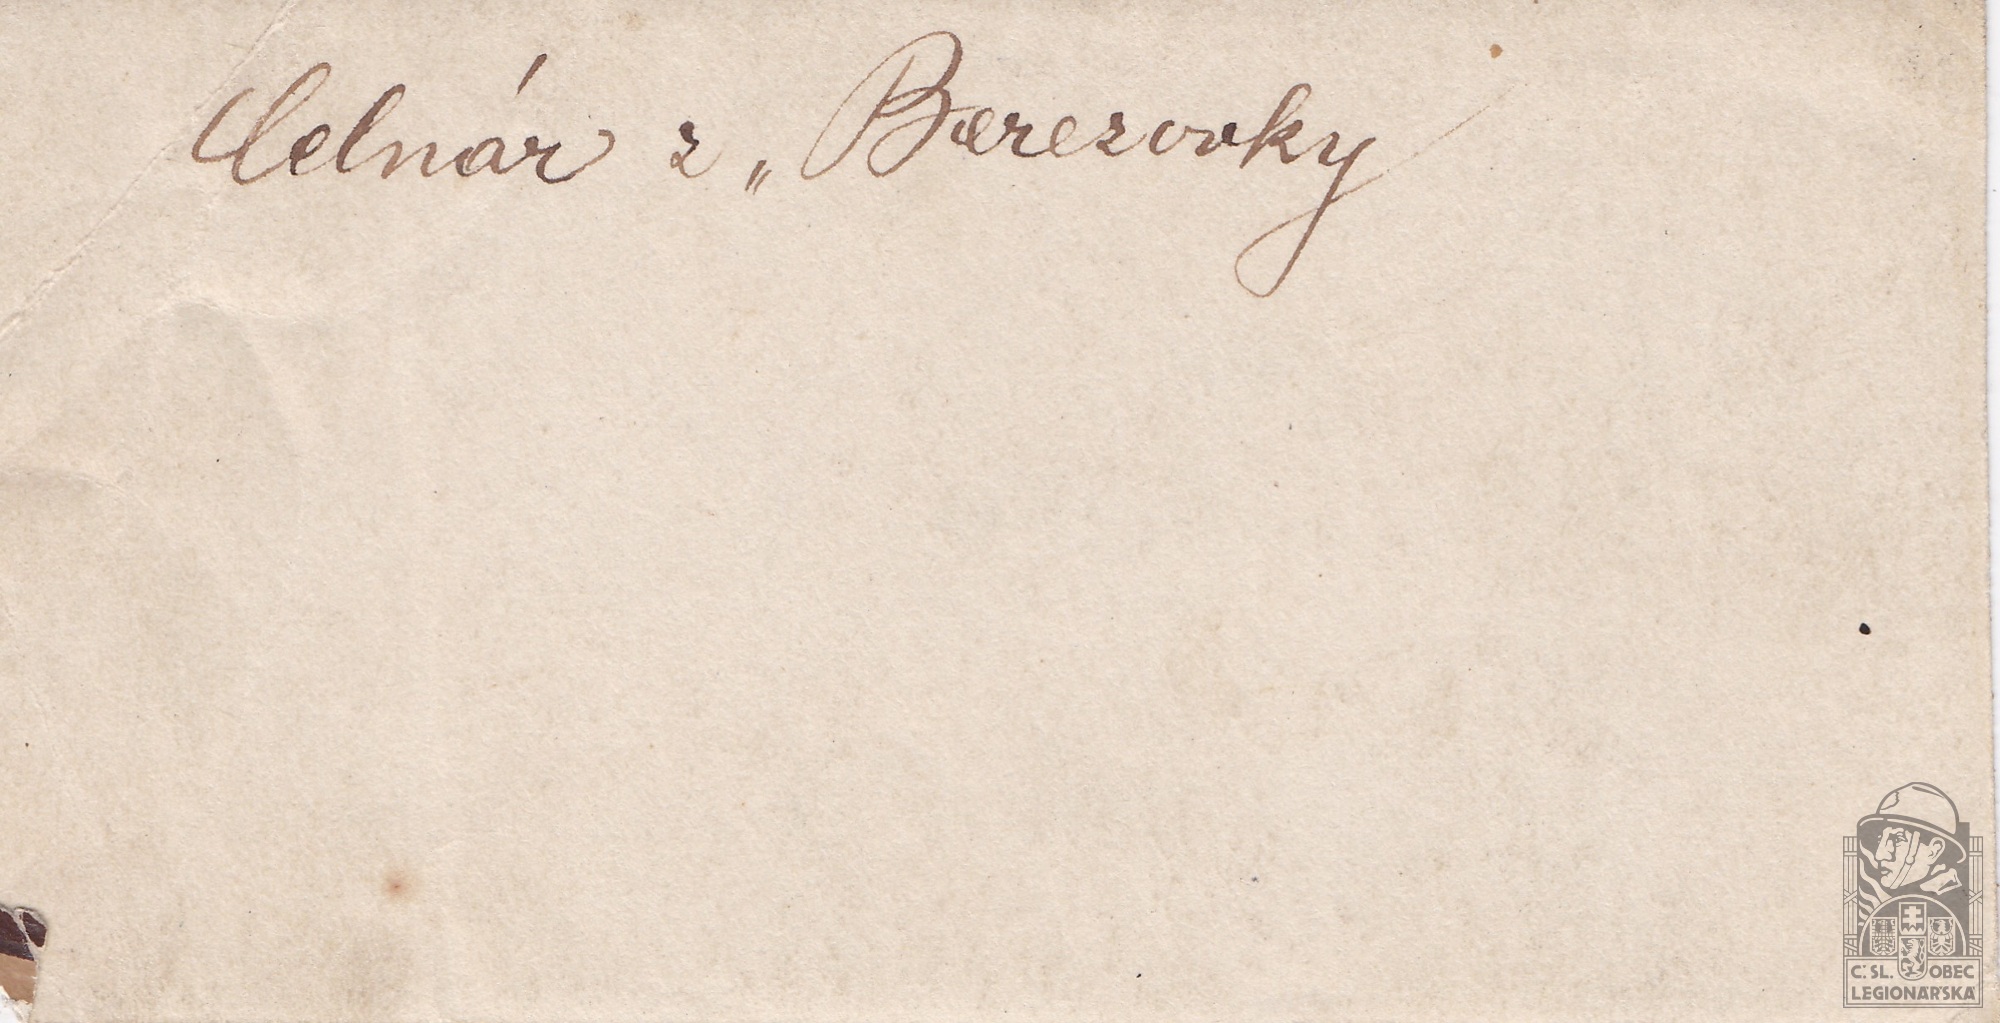 Celnár z „Berezovky
Č.SL. OBEC
LEGIONÁŘSKÁ